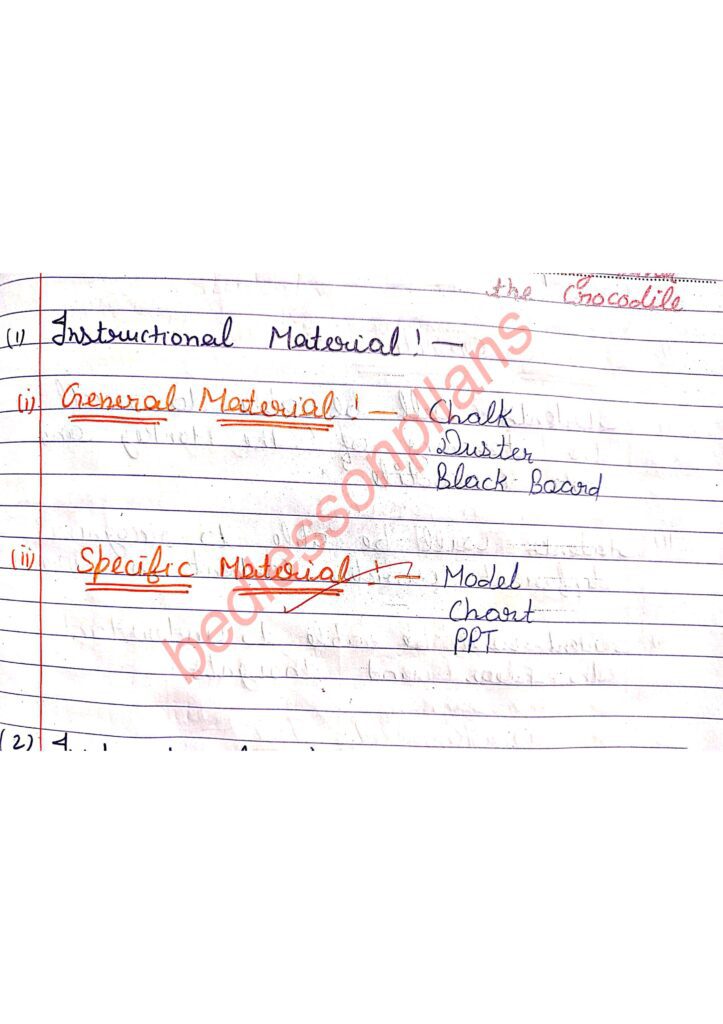 the Crocodile
(1) Instructional Material! —
(i) General Material! — Chalk
Duster
Black Board
(ii) Specific Material! — Model
Chart
PPT
(2)
bedlessonpllans